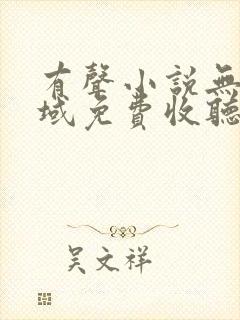 有聲小說無
域免費收聽
吴文祥